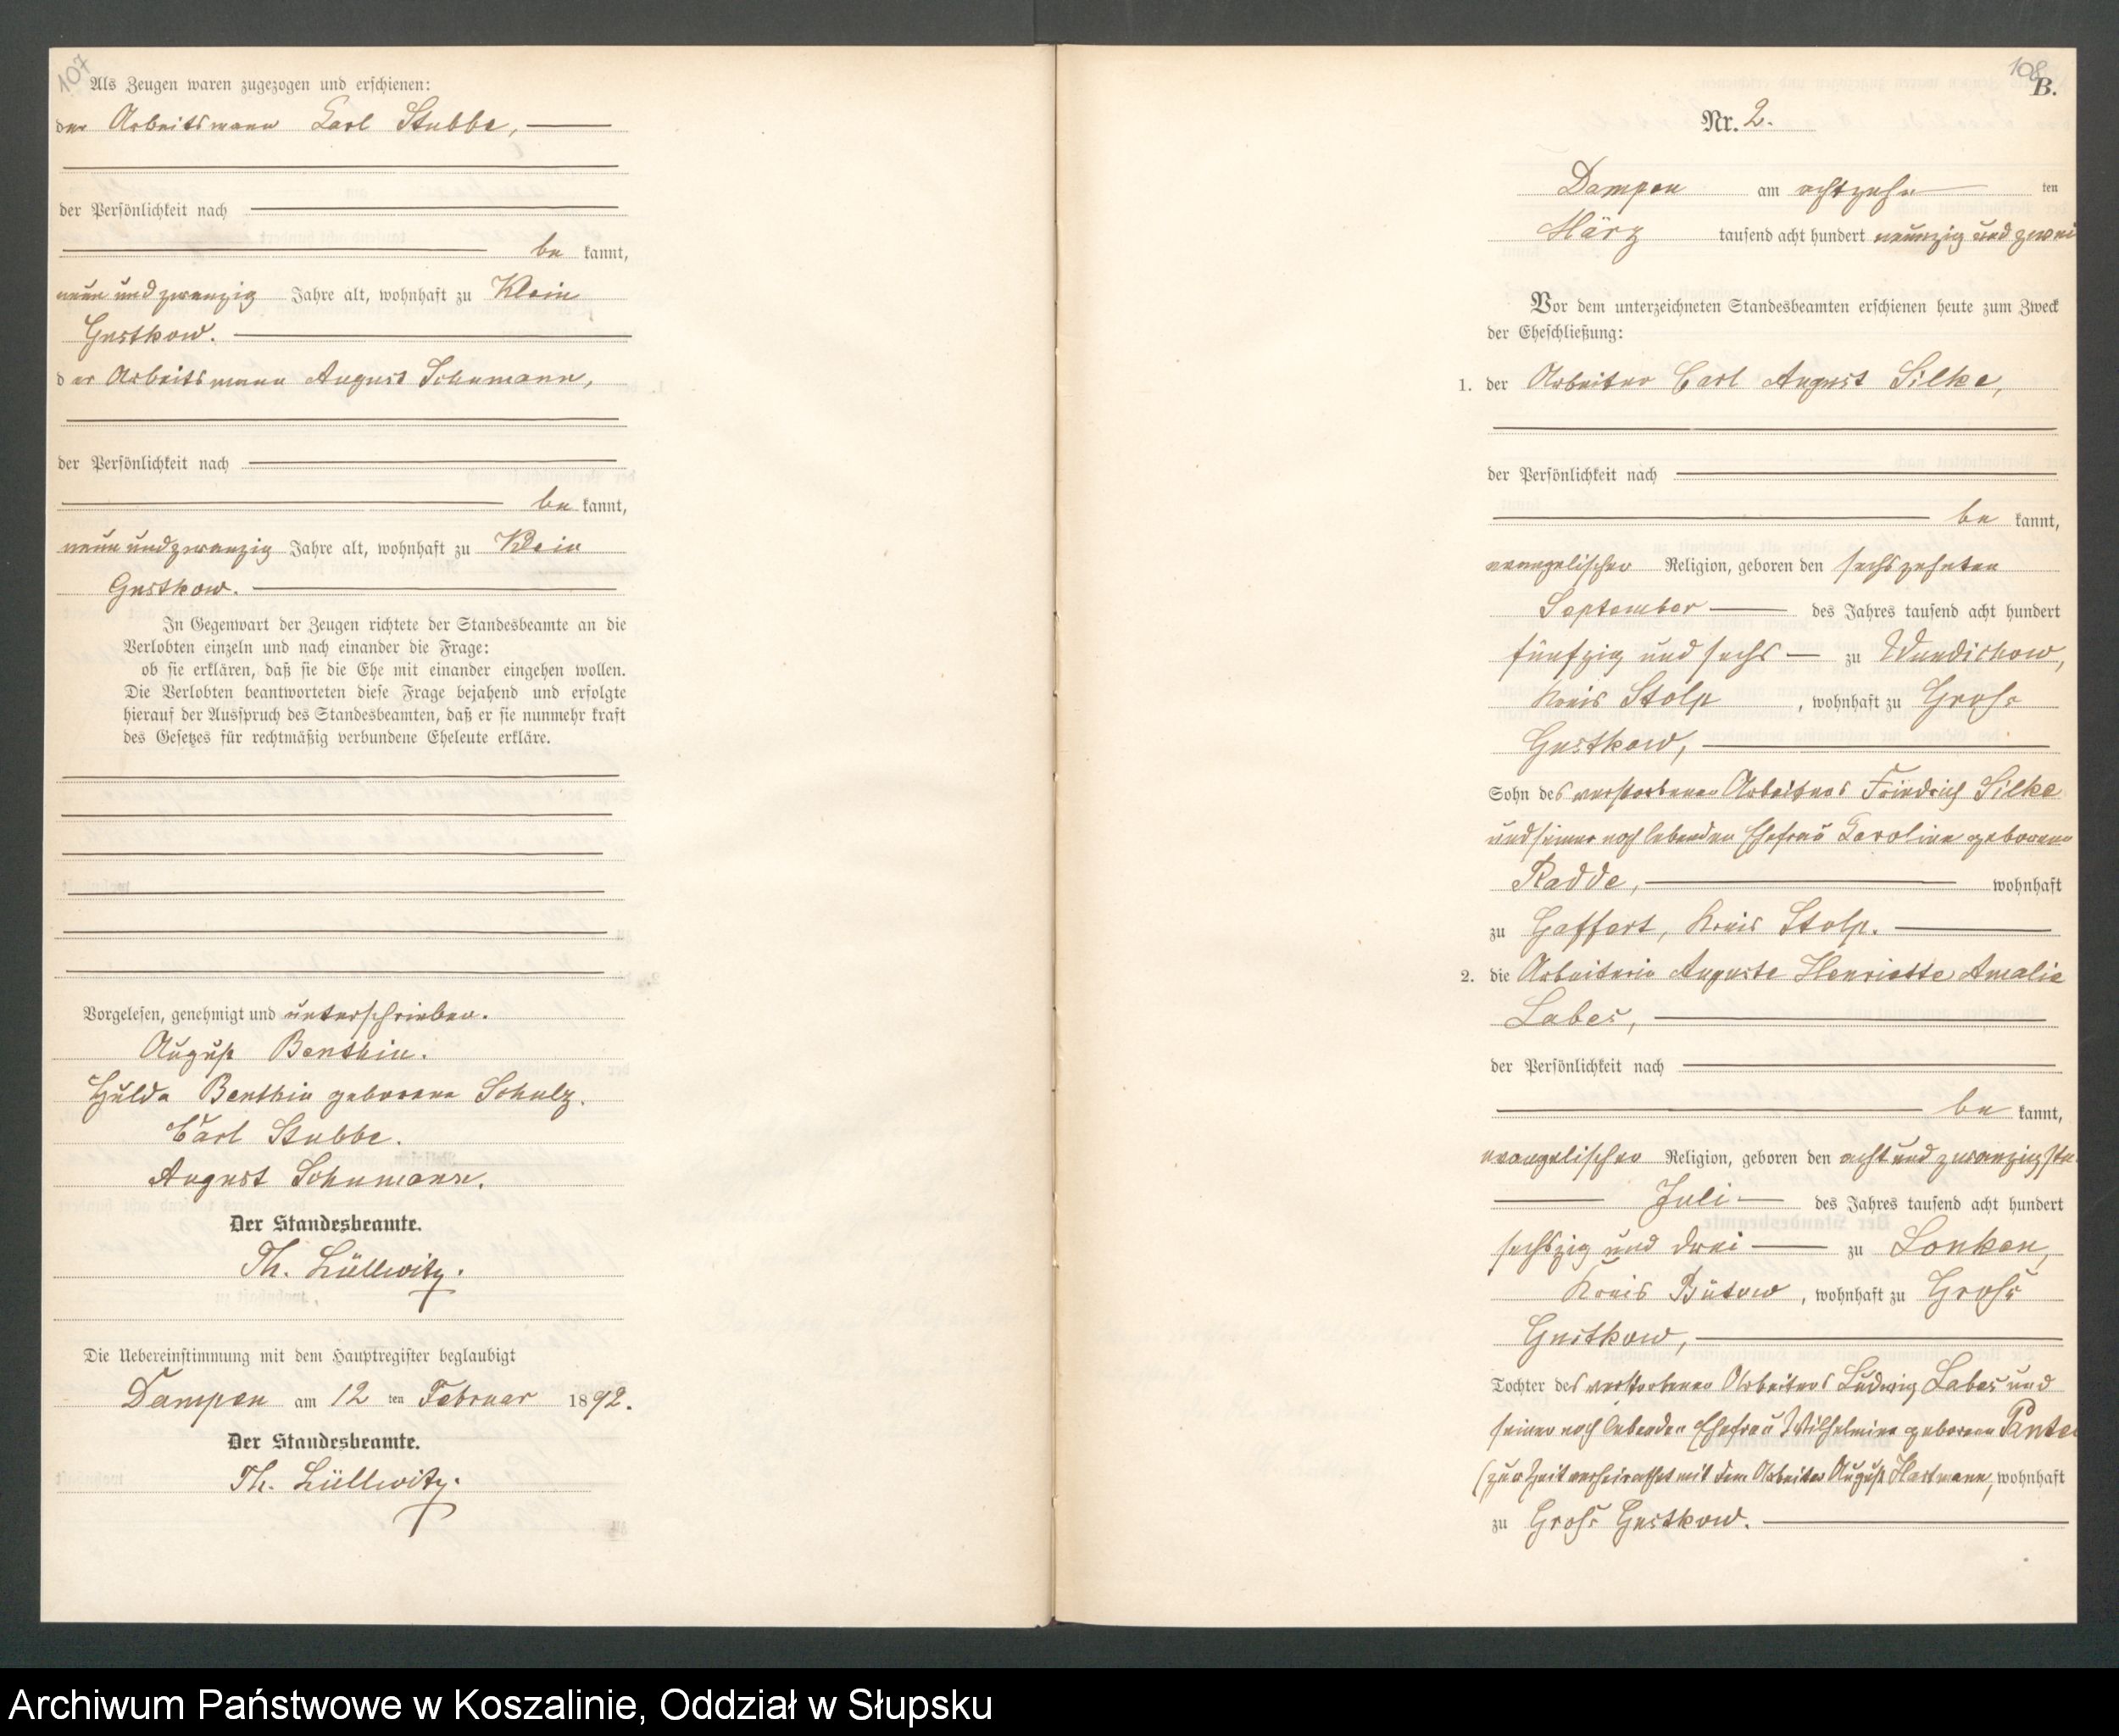 107
Als Zeugen waren zugezogen und erschienen:
der Arbeitsmann Carl Stubbe,
der Persönlichkeit nach
be kannt,
neun und zwanzig Jahre alt, wohnhaft zu Klein
Gustkow.
der Arbeitsmann August Schumann,
der Persönlichkeit nach
be kannt,
neun und zwanzig Jahre alt, wohnhaft zu Klein
Gustkow.
In Gegenwart der Zeugen richtete der Standesbeamte an die
Verlobten einzeln und nach einander die Frage:
ob sie erklären, daß sie die Ehe mit einander eingehen wollen.
Die Verlobten beantworteten diese Frage bejahend und erfolgte
hierauf der Ausspruch des Standesbeamten, daß er sie nunmehr kraft
des Gesetzes für rechtmäßig verbundene Eheleute erkläre.
Vorgelesen, genehmigt und unterschrieben.
August Benthin.
Hulda Benthin geborene Schulz.
Carl Stubbe.
August Schumann.
Der Standesbeamte.
Th. Lüllwitz.
Die Uebereinstimmung mit dem Hauptregister beglaubigt
Dampen am 12 ten Februar 1892.
Der Standesbeamte.
Th. Lüllwitz.
108
B.
Nr. 2.
Dampen am achtzehn ten
März tausend acht hundert neunzig und zwei
Vor dem unterzeichneten Standesbeamten erschienen heute zum Zweck
der Eheschließung:
1. der Arbeiter Carl August Silke,
der Persönlichkeit nach
be kannt,
evangelischer Religion, geboren den sechszehnten
September des Jahres tausend acht hundert
fünfzig und sechs zu Wundichow,
Kreis Stolp, wohnhaft zu Groß
Gustkow,
Sohn des verstorbenen Arbeiters Friedrich Silke
und seiner noch lebenden Ehefrau Caroline geborene
Radde, wohnhaft
zu Gaffert, Kreis Stolp.
2. die Arbeiterin Auguste Henriette Amalie
Labes,
der Persönlichkeit nach
be kannt,
evangelischer Religion, geboren den acht und zwanzigsten
Juli des Jahres tausend acht hundert
sechszig und drei zu Lonken,
Kreis Bütow, wohnhaft zu Groß
Gustkow,
Tochter des verstorbenen Arbeiters Ludwig Labes und
seiner noch lebenden Ehefrau Wilhelmine geborene
(zur Zeit verheirathet mit dem Arbeiter August Hartmann, wohnhaft
zu Groß Gustkow.
Archiwum Państwowe w Koszalinie, Oddział w Słupsku